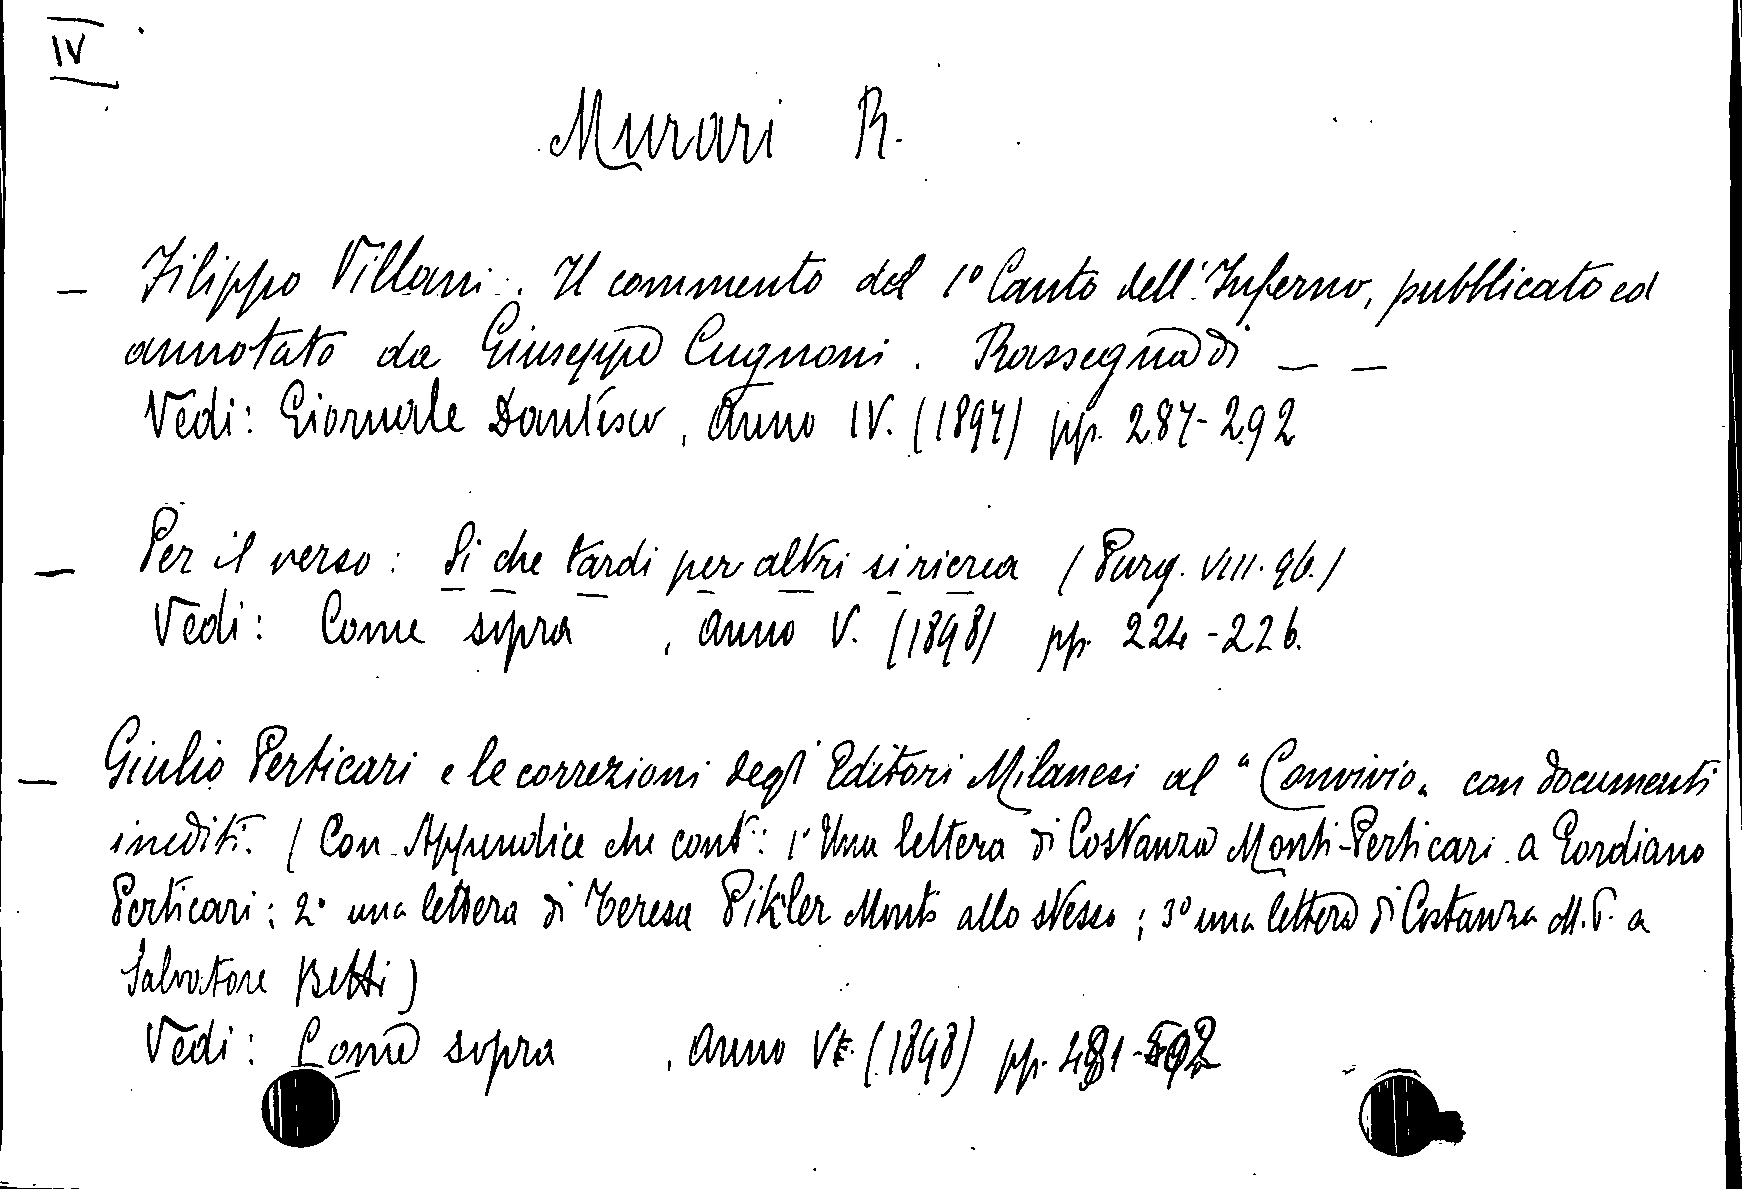 IV
Murari R.
– Filippo Villani. Il commento del 1° Canto dell'Inferno, pubblicato ed
annotato da Giuseppe Cugnoni. Rassegna di – –
Vedi: Giornale Dantesco, Anno IV. (1897) pp. 287-292
– Per il verso: Si che tardi per altri si ricrea (Purg. VIII. 96.)
Vedi: Come sopra, Anno V. (1898) pp. 224-226.
– Giulio Perticari e le correzioni degl' Editori Milanesi al "Convivio" con documenti
inediti. (Con Appendice che cont: 1° Una lettera di Costanza Monti-Perticari a Gordiano
Perticari; 2° una lettera di Teresa Pikler Monti allo stesso; 3° una lettera di Costanza M. P. a
Salvatore Betti)
Vedi: Come sopra, Anno V. (1898) pp. 481-